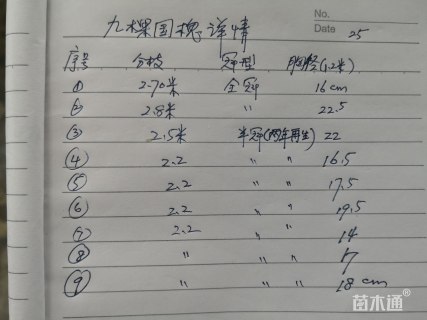 No.
Date 25
九棵国槐详情
序号 分枝 冠型 胸径(1.2米)
① 2.70米 全冠 16cm
② 2.8米 " 22.5
③ 2.5米 半冠(两年再生) 22
④ 2.2 " " 16.5
⑤ 2.2 " " 17.5
⑥ 2.2 " " 19.5
⑦ 2.2 " " 14
⑧ " " " 17
⑨ " " " 18cm
苗木通®